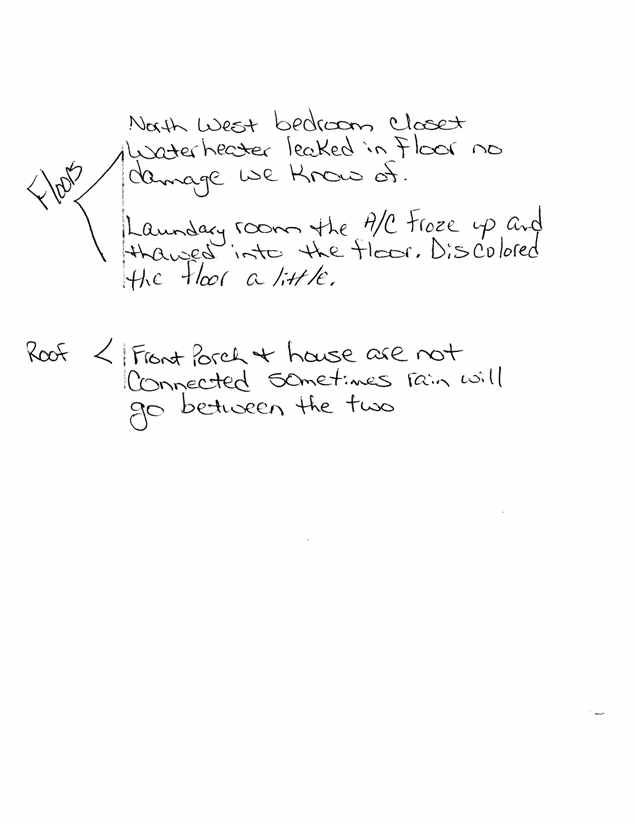 North West bedroom closet
Floors
Waterheater leaked in floor no
damage we know of.
Laundary room the A/C froze up and
thawed into the floor. Discolored
the floor a little.
Roof < Front Porch + house are not
Connected sometimes rain will
go between the two